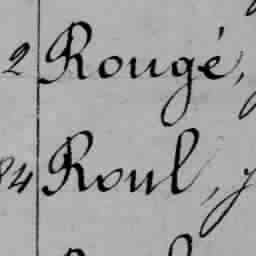 2 Rougé,
84 Roul,